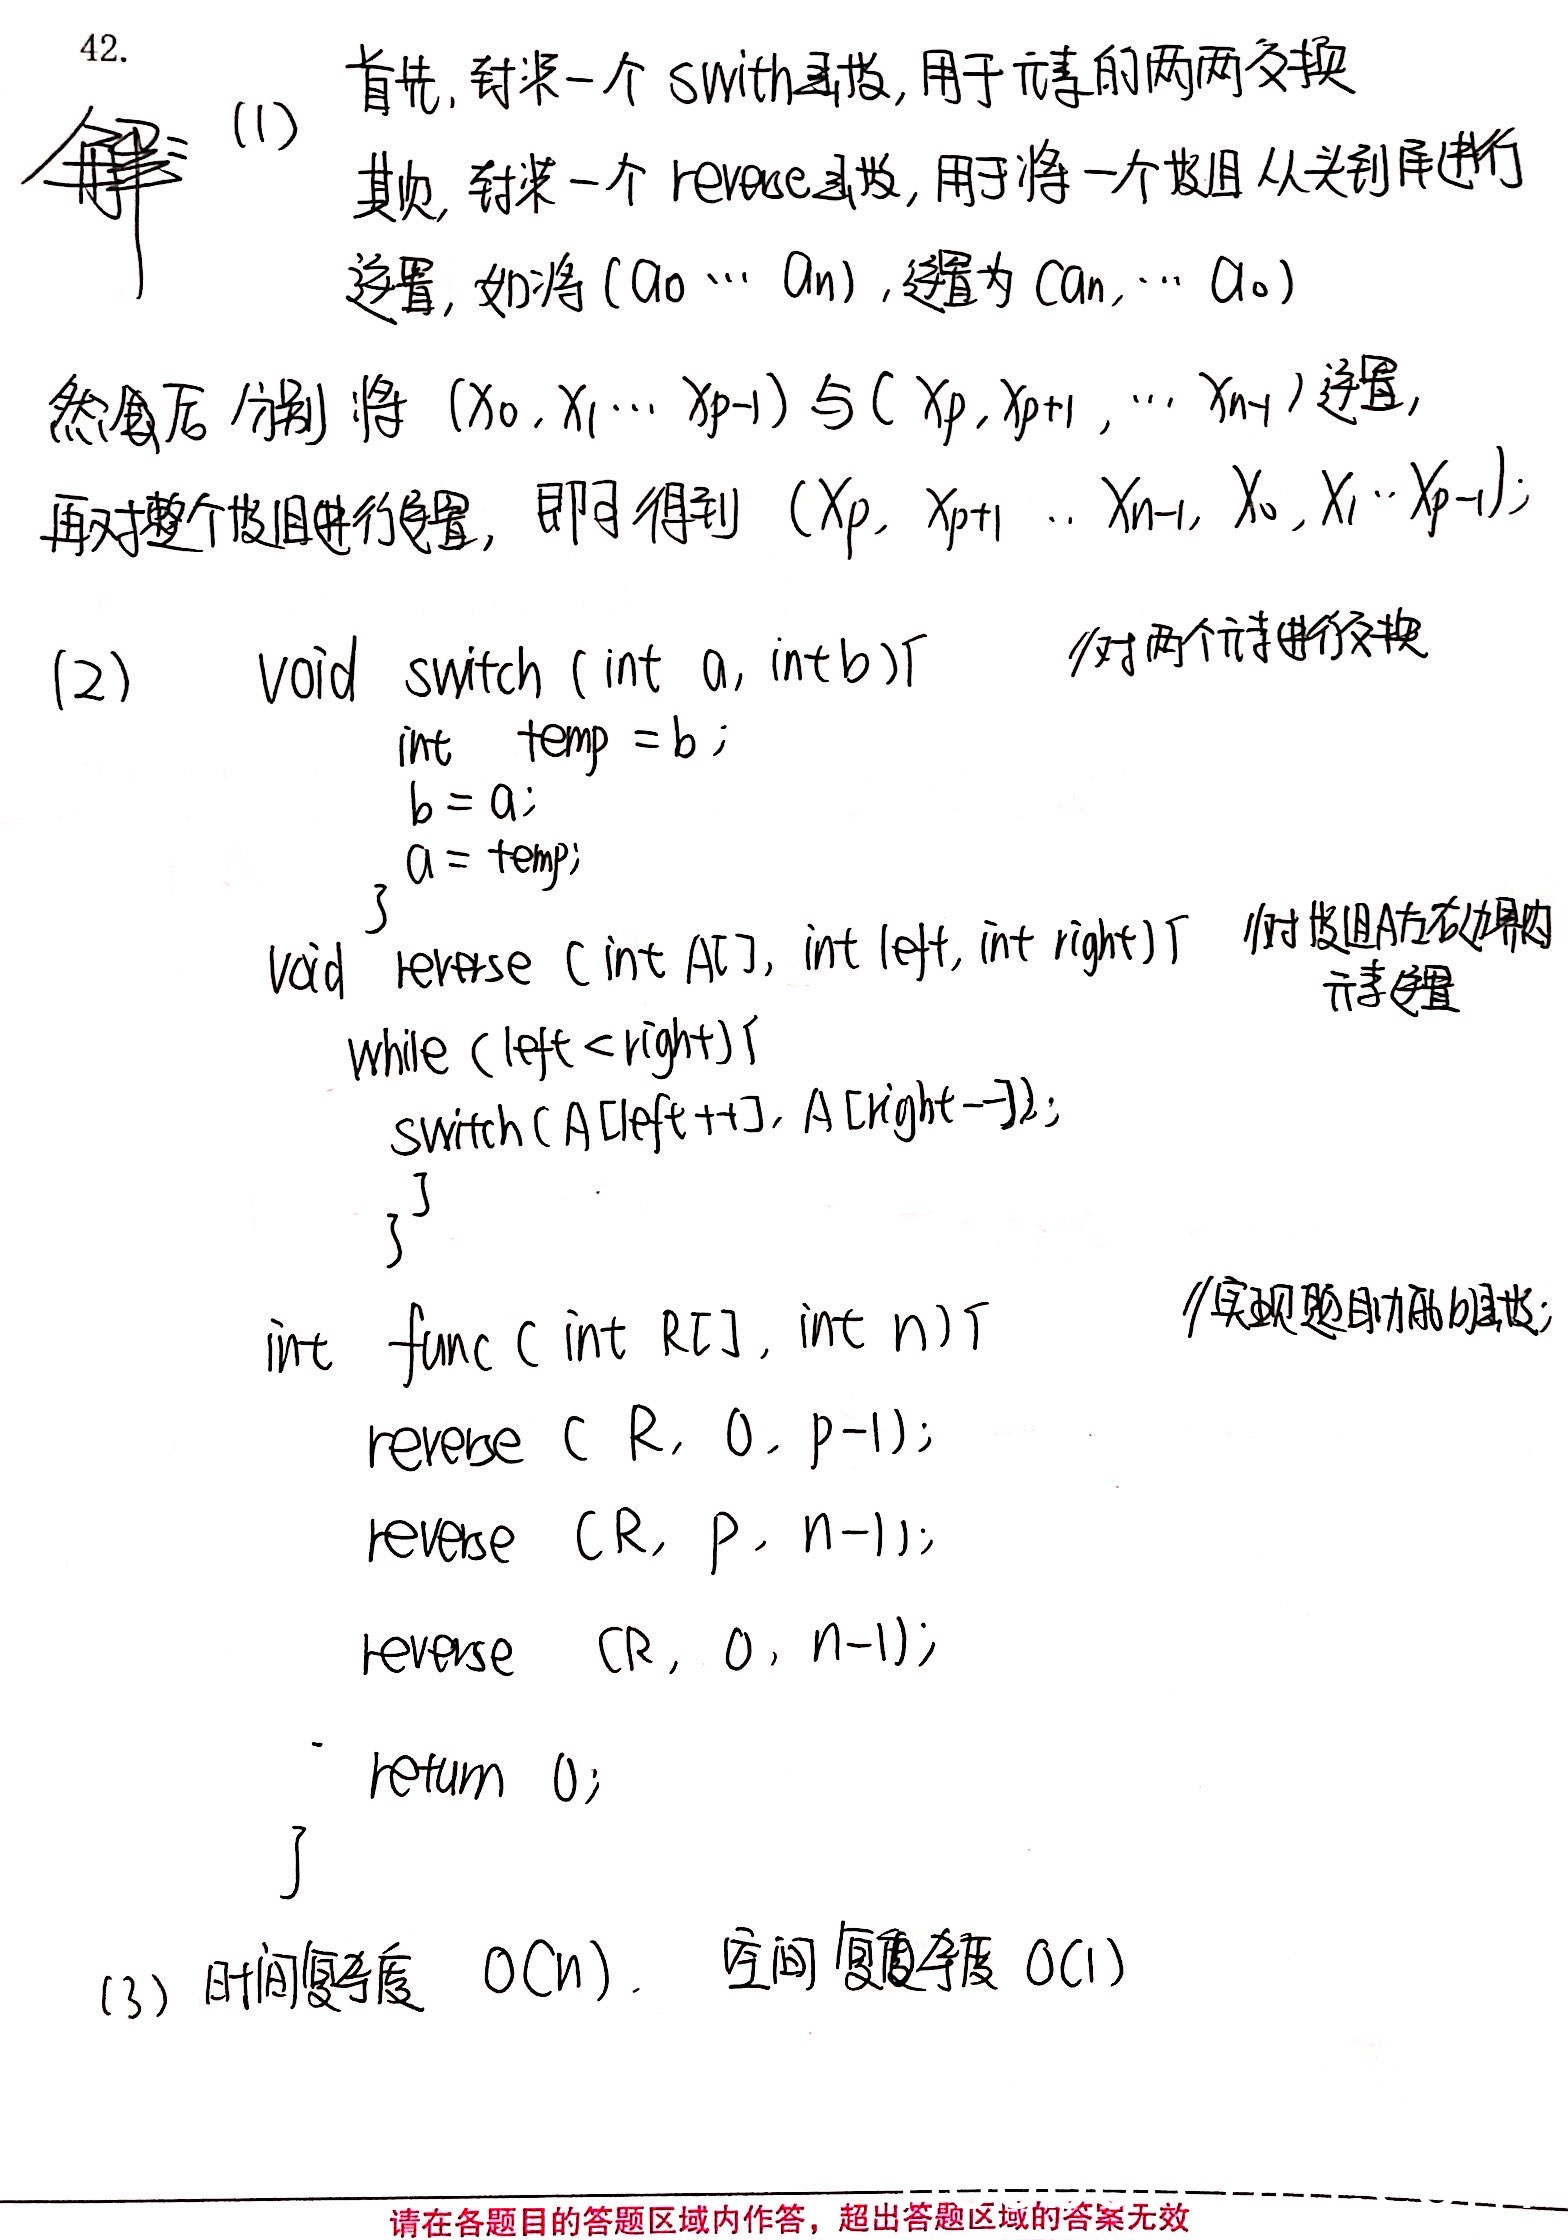 42.
解: (1) 首先, 封装一个 swith函数, 用于元素的两两交换
其次, 封装一个 reverse函数, 用于将一个数组从头到尾进行
逆置, 如将 (a0 … an), 逆置为 (an, … a0)
然后 分别 将 (X0, X1 … Xp-1) 与 ( Xp, Xp+1, … Xn-1) 逆置,
再对整个数组进行逆置, 即可得到 (Xp, Xp+1 .. Xn-1, X0, X1 .. Xp-1);
(2) void switch (int a, int b){ //对两个元素进行交换
int temp = b;
b = a;
a = temp;
}
void reverse (int A[], int left, int right){ //对数组A左右边界内
元素逆置
while (left < right){
switch(A[left++], A[right--]);
}
}
int func ( int R[], int n){ //实现题目功能的函数;
reverse ( R, 0, p-1);
reverse (R, p, n-1);
reverse (R, 0, n-1);
return 0;
}
(3) 时间复杂度 O(n). 空间复杂度 O(1)
请在各题目的答题区域内作答，超出答题区域的答案无效